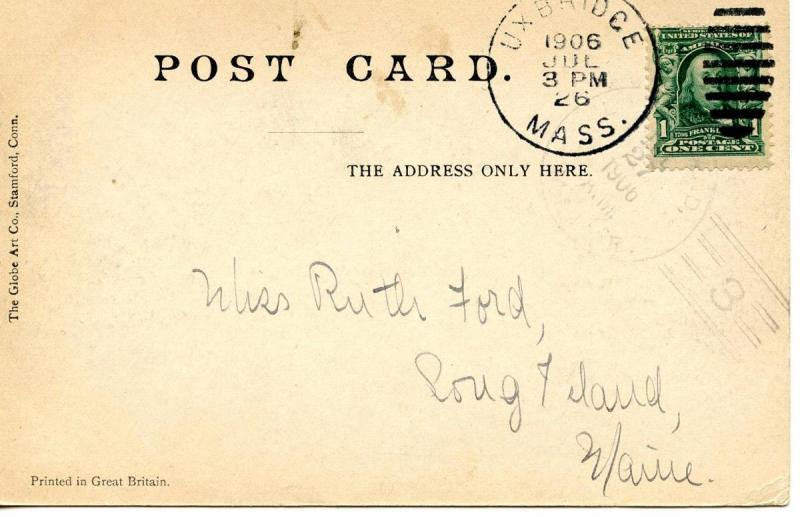 UXBRIDGE
1906
JUL
3 PM
26
MASS.
SERIES
UNITED STATES OF
AMERICA
1 FRANKLIN 1
POSTAGE
ONE CENT
POST CARD.
THE ADDRESS ONLY HERE.
1906
3
Miss Ruth Ford,
Long Island,
Maine.
The Globe Art Co., Stamford, Conn.
Printed in Great Britain.